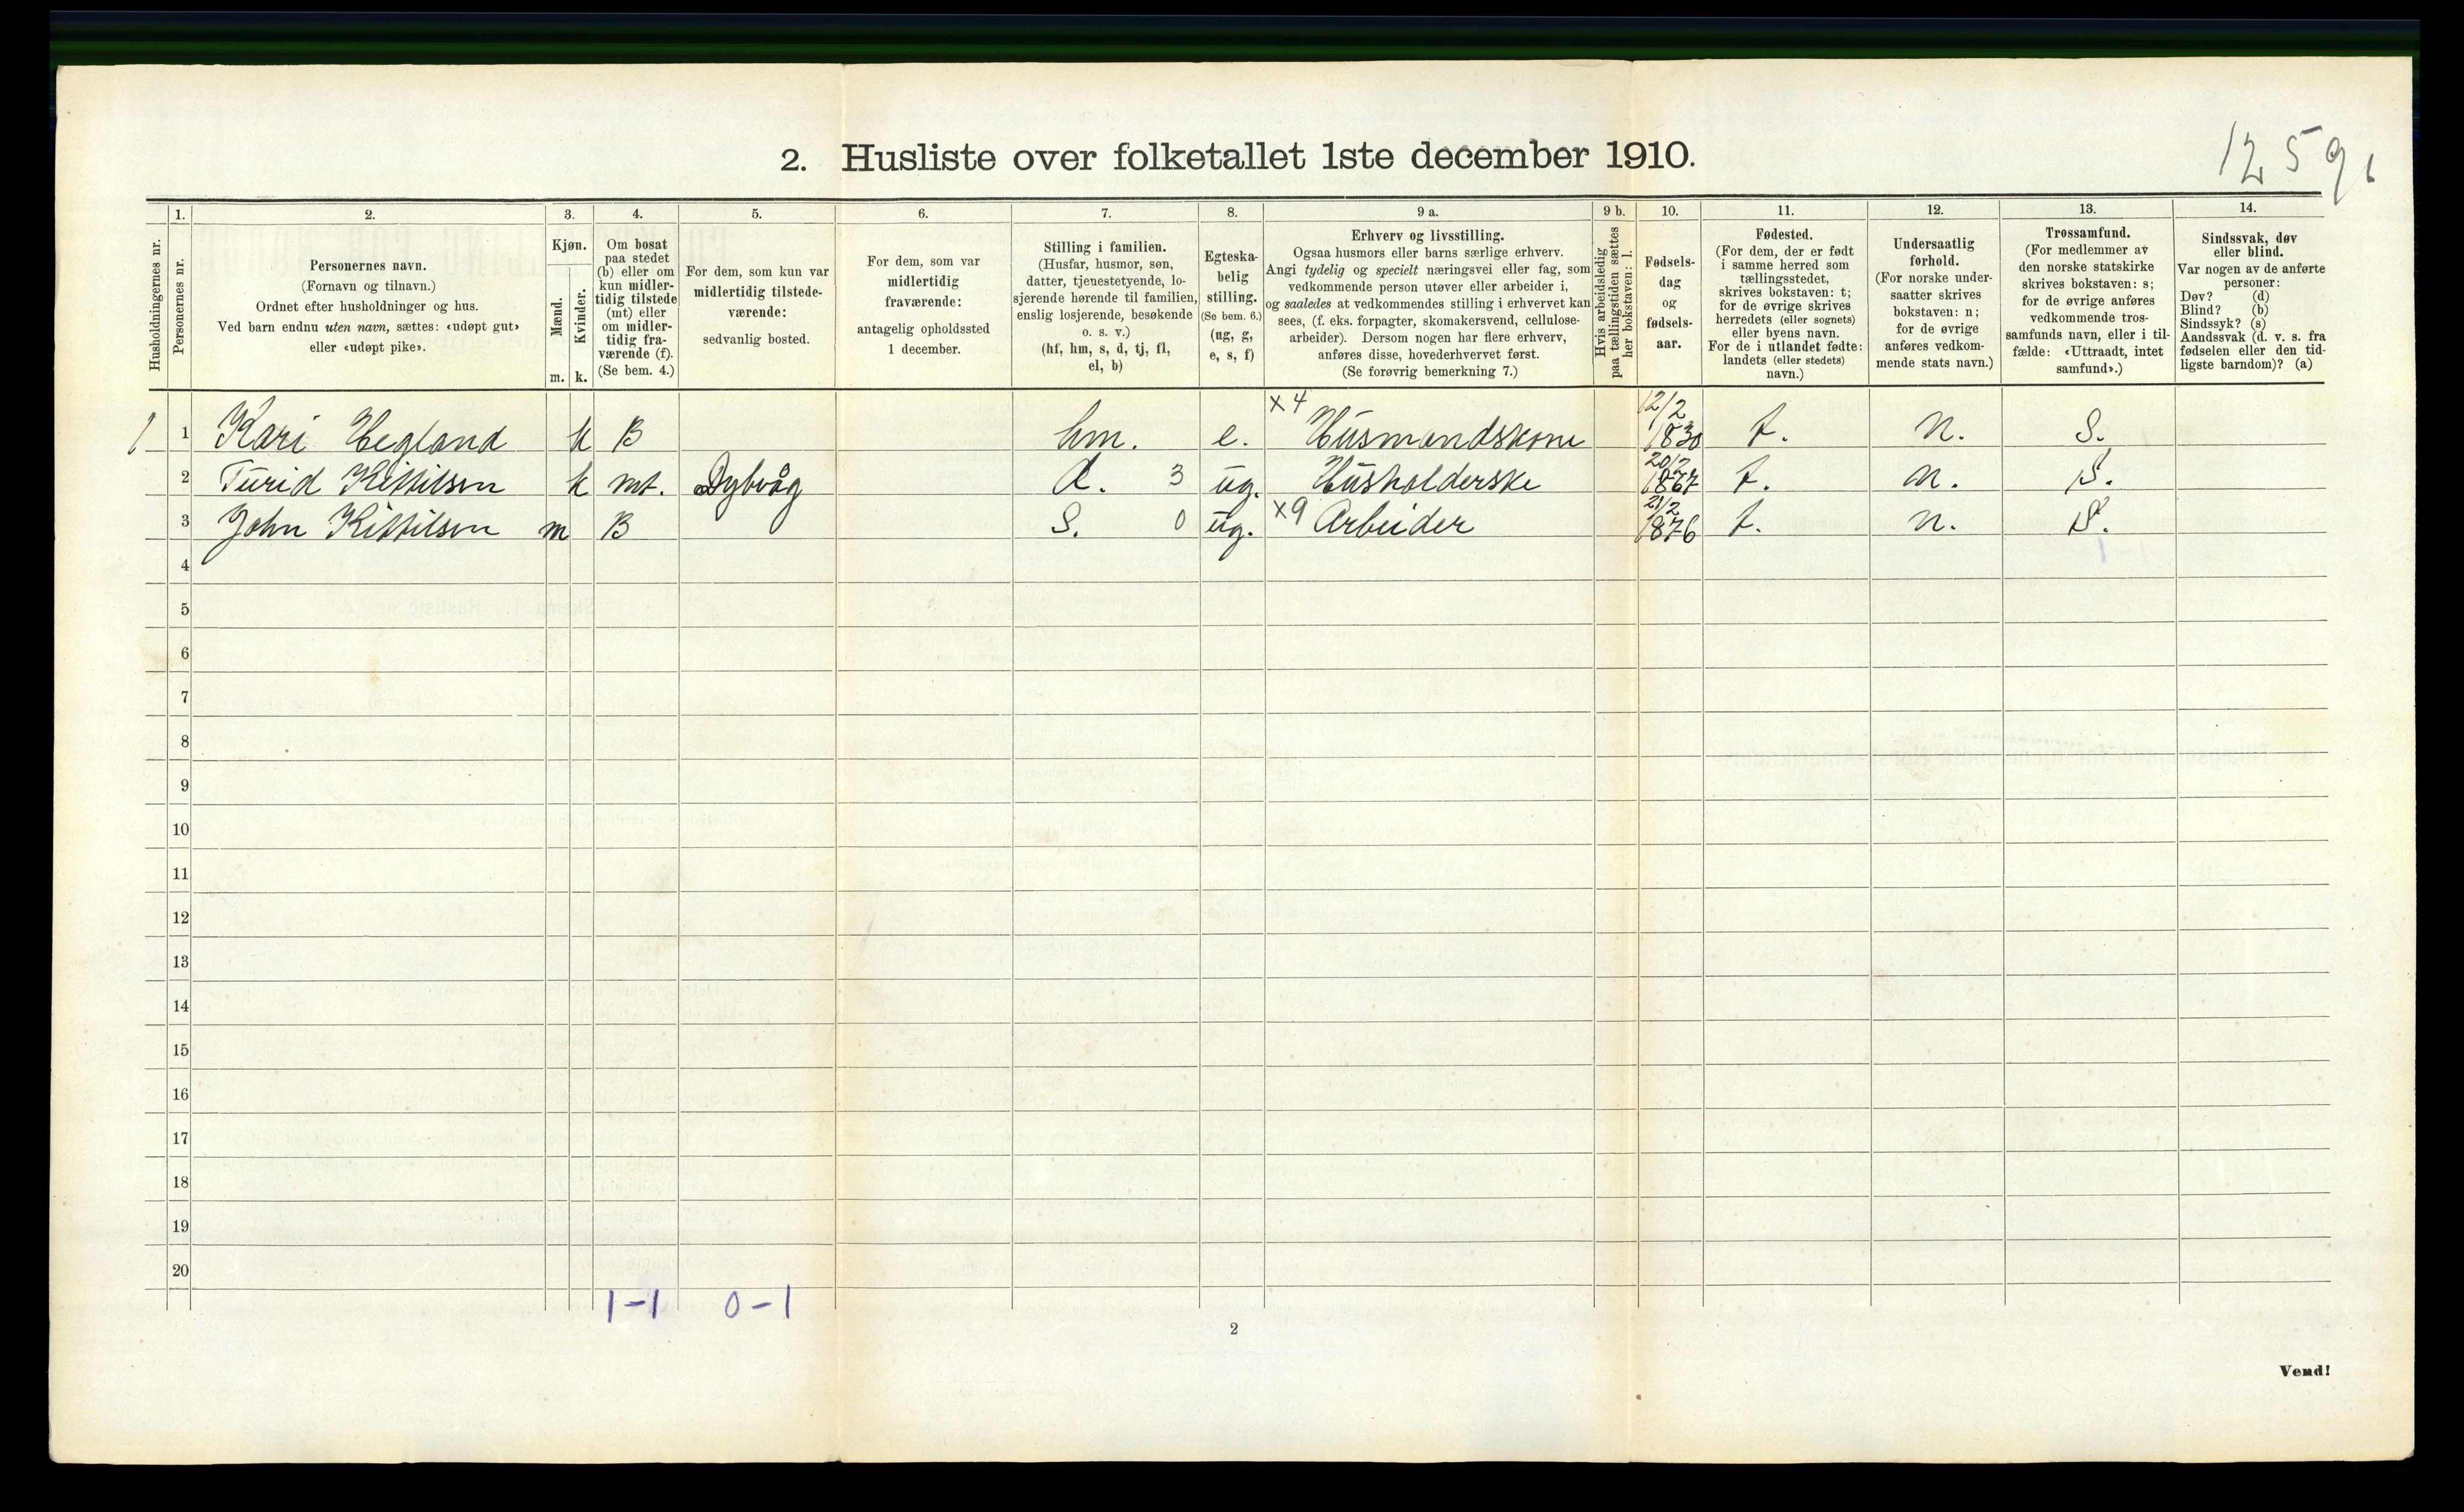 2. Husliste over folketallet 1ste december 1910.
12 59
Husholdningernes nr.
1.
Personernes nr.
2.
Personernes navn.
(Fornavn og tilnavn.)
Ordnet efter husholdninger og hus.
Ved barn endnu uten navn, sættes: «udøpt gut»
eller «udøpt pike».
3.
Kjøn.
Mænd.
Kvinder.
m. k.
4.
Om bosat
paa stedet
(b) eller om
kun midler-
tidig tilstede
(mt) eller
om midler-
tidig fra-
værende (f).
(Se bem. 4.)
5.
For dem, som kun var
midlertidig tilstede-
værende:
sedvanlig bosted.
6.
For dem, som var
midlertidig
fraværende:
antagelig opholdssted
1 december.
7.
Stilling i familien.
(Husfar, husmor, søn,
datter, tjenestetyende, lo-
sjerende hørende til familien,
enslig losjerende, besøkende
o. s. v.)
(hf, hm, s, d, tj, fl,
el, b)
8.
Egteska-
belig
stilling.
(Se bem. 6.)
(ug, g,
e, s, f)
9 a.
Erhverv og livsstilling.
Ogsaa husmors eller barns særlige erhverv.
Angi tydelig og specielt næringsvei eller fag, som
vedkommende person utøver eller arbeider i,
og saaledes at vedkommendes stilling i erhvervet kan
sees, (f. eks. forpagter, skomakersvend, cellulose-
arbeider). Dersom nogen har flere erhverv,
anføres disse, hovederhvervet først.
(Se forøvrig bemerkning 7.)
9 b.
Hvis arbeidsledig
paa tællingstiden sættes
her bokstaven: l.
10.
Fødsels-
dag
og
fødsels-
aar.
11.
Fødested.
(For dem, der er født
i samme herred som
tællingsstedet,
skrives bokstaven: t;
for de øvrige skrives
herredets (eller sognets)
eller byens navn.
For de i utlandet fødte:
landets (eller stedets)
navn.)
12.
Undersaatlig
forhold.
(For norske under-
saatter skrives
bokstaven: n;
for de øvrige
anføres vedkom-
mende stats navn.)
13.
Trossamfund.
(For medlemmer av
den norske statskirke
skrives bokstaven: s;
for de øvrige anføres
vedkommende tros-
samfunds navn, eller i til-
fælde: «Uttraadt, intet
samfund».)
14.
Sindssvak, døv
eller blind.
Var nogen av de anførte
personer:
Døv? (d)
Blind? (b)
Sindssyk? (s)
Aandssvak (d. v. s. fra
fødselen eller den tid-
ligste barndom)? (a)
1 1 Kari Hegland k B hm. e. x4 Husmandskone 12/2 1830 t. n. S.
2 Turid Kittilsen k mt. Dybvåg d. 3 ug. Husholderske 20/2 1867 t. n. S.
3 John Kittilsen m B S. 0 ug. x9 Arbeider 21/2 1876 t. n. S.
4
5
6
7
8
9
10
11
12
13
14
15
16
17
18
19
20
1-1 0-1
2
Vend!